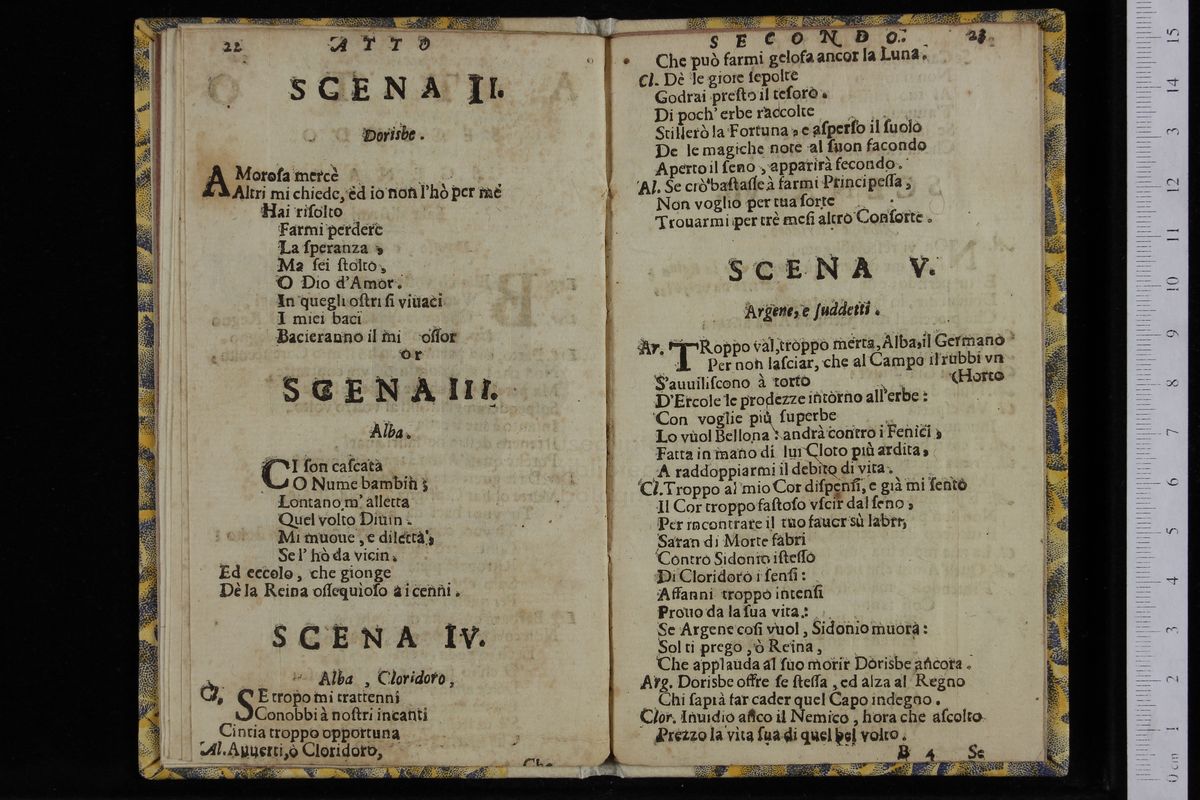 22 ATTO
SCENA II.
Dorisbe.
AMorosa mercè
Altri mi chiede, ed io non l'hò per mè
Hai risolto
Farmi perdere
La speranza,
Ma sei stolto,
O Dio d'Amor.
In quegli ostri si viuaci
I miei baci
Bacieranno il mi ossor
or
SCENA III.
Alba.
CI son cascata
O Nume bambin;
Lontano m'alletta
Quel volto Diuin.
Mi muoue, e diletta,
Se l'hò da vicin.
Ed eccolo, che gionge
Dè la Reina ossequioso a i cenni.
SCENA IV.
Alba, Cloridoro,
Cl. SE tropo mi trattenni
Conobbi à nostri incanti
Cintia troppo opportuna
Al. Auuerti, ò Cloridoro,
Che
SECONDO. 23
Che può farmi gelosa ancor la Luna.
Cl. Dè le gioie sepolte
Godrai presto il tesoro.
Di poch'erbe raccolte
Stillerò la Fortuna, e asperso il suolo
De le magiche note al suon facondo
Aperto il seno, apparirà fecondo.
Al. Se ciò bastasse à farmi Principessa,
Non voglio per tua sorte
Trouarmi per trè mesi altro Consorte.
SCENA V.
Argene, e suddetti.
Ar. TRoppo val, troppo merta, Alba, il Germano
Per non lasciar, che al Campo il rubbi vn
S'auuiliscono à torto (Horto
D'Ercole le prodezze intorno all'erbe:
Con voglie più superbe
Lo vuol Bellona: andrà contro i Fenici,
Fatta in mano di lui Cloto più ardita,
A raddoppiarmi il debito di vita.
Cl. Troppo al mio Cor dispensi, e già mi sento
Il Cor troppo fastoso vscir dal seno,
Per incontrare il tuo fauer sù labri,
Saran di Morte fabri
Contro Sidonio istesso
Di Cloridoro i sensi:
Affanni troppo intensi
Prouo da la sua vita:
Se Argene così vuol, Sidonio muora:
Sol ti prego, ò Reina,
Che applauda al suo morir Dorisbe ancora.
Arg. Dorisbe offre se stessa, ed alza al Regno
Chi saprà far cader quel Capo indegno.
Clor. Inuidio anco il Nemico, hora che ascolto
Prezzo la vita sua di quel bel volto.
B 4 Se